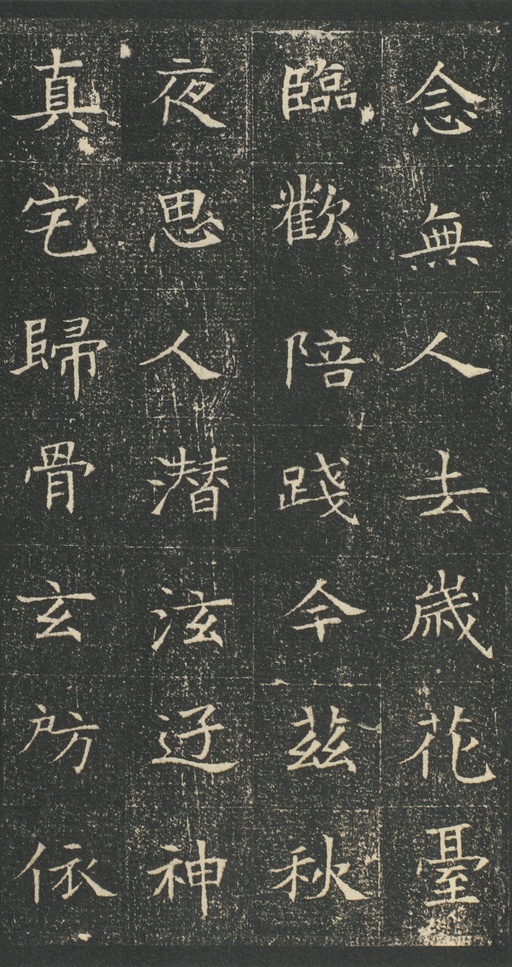 念無人去歲花臺
臨歡陪踐今茲秋
夜思人潛泫迓神
真宅歸骨玄房依